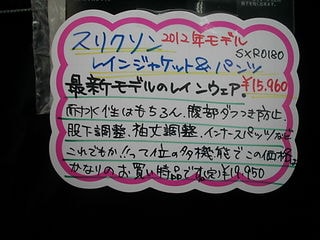 スリクソン 2012年モデル
SXR0180
レインジャケット&パンツ
最新モデルのレインウェア! ¥15,960
耐水性はもちろん、腹部ダブつき防止、
股下調整、袖丈調整、インナースパッツなど
これでもか!!って位の多機能でこの価格は
かなりのお買い得品です 定)¥19,950